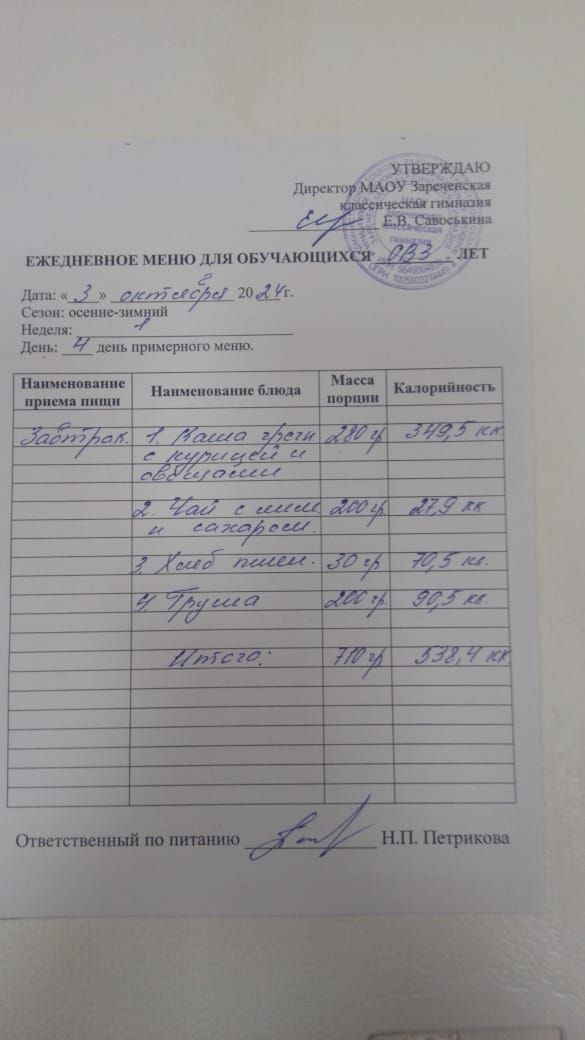 УТВЕРЖДАЮ
Директор МАОУ Зареченская
классическая гимназия
Е.В. Савоськина
ЕЖЕДНЕВНОЕ МЕНЮ ДЛЯ ОБУЧАЮЩИХСЯ ОВЗ ЛЕТ
Дата: «3» октября 2024г.
Сезон: осенне-зимний
Неделя: 1
День: 4 день примерного меню.
Наименование приема пищи Наименование блюда Масса порции Калорийность
Завтрак. 1. Каша гречн. 280 гр 349,5 кк.
с курицей и
овощами
2. Чай с лим. 200 гр 27,9 кк
и сахаром.
3. Хлеб пшен. 30 гр 70,5 кк.
4. Груша 200 гр. 90,5 кк.
Итого: 710 гр 538,4 кк.
Ответственный по питанию Н.П. Петрикова